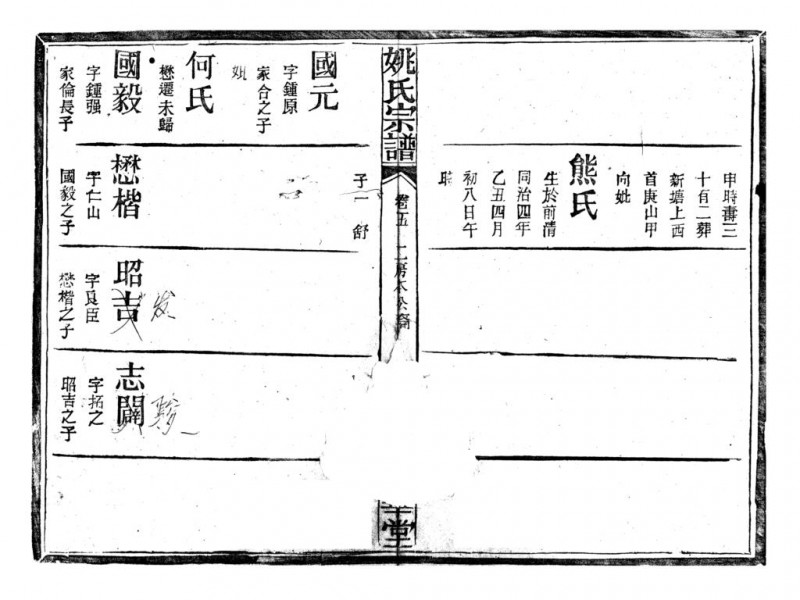 申時壽三
十有二葬
新塘上西
首庚山甲
向妣
熊氏
生於前清
同治四年
乙丑四月
初八日午
時
姚氏宗譜
卷五
二房本公裔
堂
國元
字鍾原
家合之子
妣
何氏
懋遷未歸
國毅
字鍾强
家倫長子
子一 舒
懋楷
字仁山
國毅之子
昭吉
发
字良臣
懋楷之子
志闢
字拓之
昭吉之子